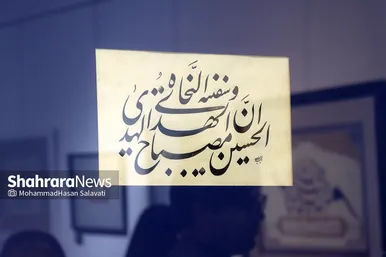 انّ الحسین مصباح الهدی
وسفینة النّجاة
ShahraraNews
MohammadHasan Salavati